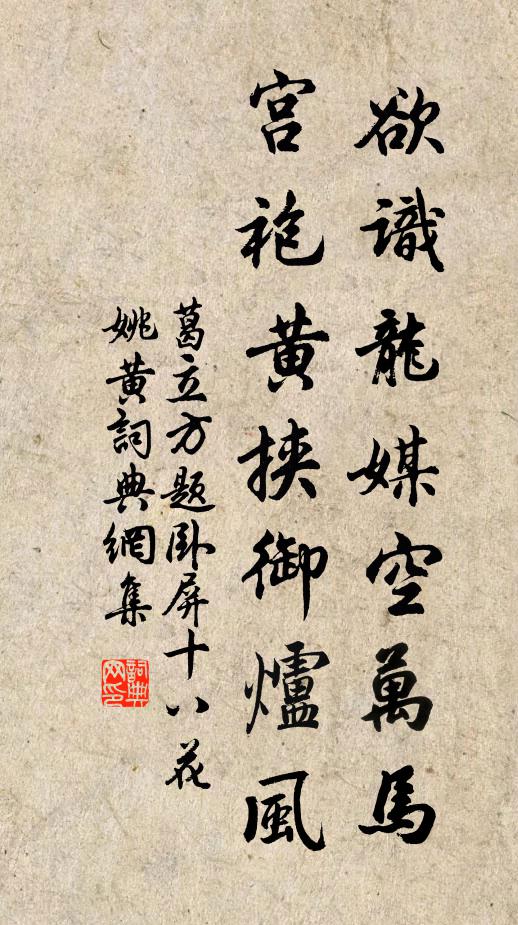 欲識龍媒空萬馬
宮袍黃挾御爐風
葛立方題卧屏十八花
姚黃詞典網集
詞典网印